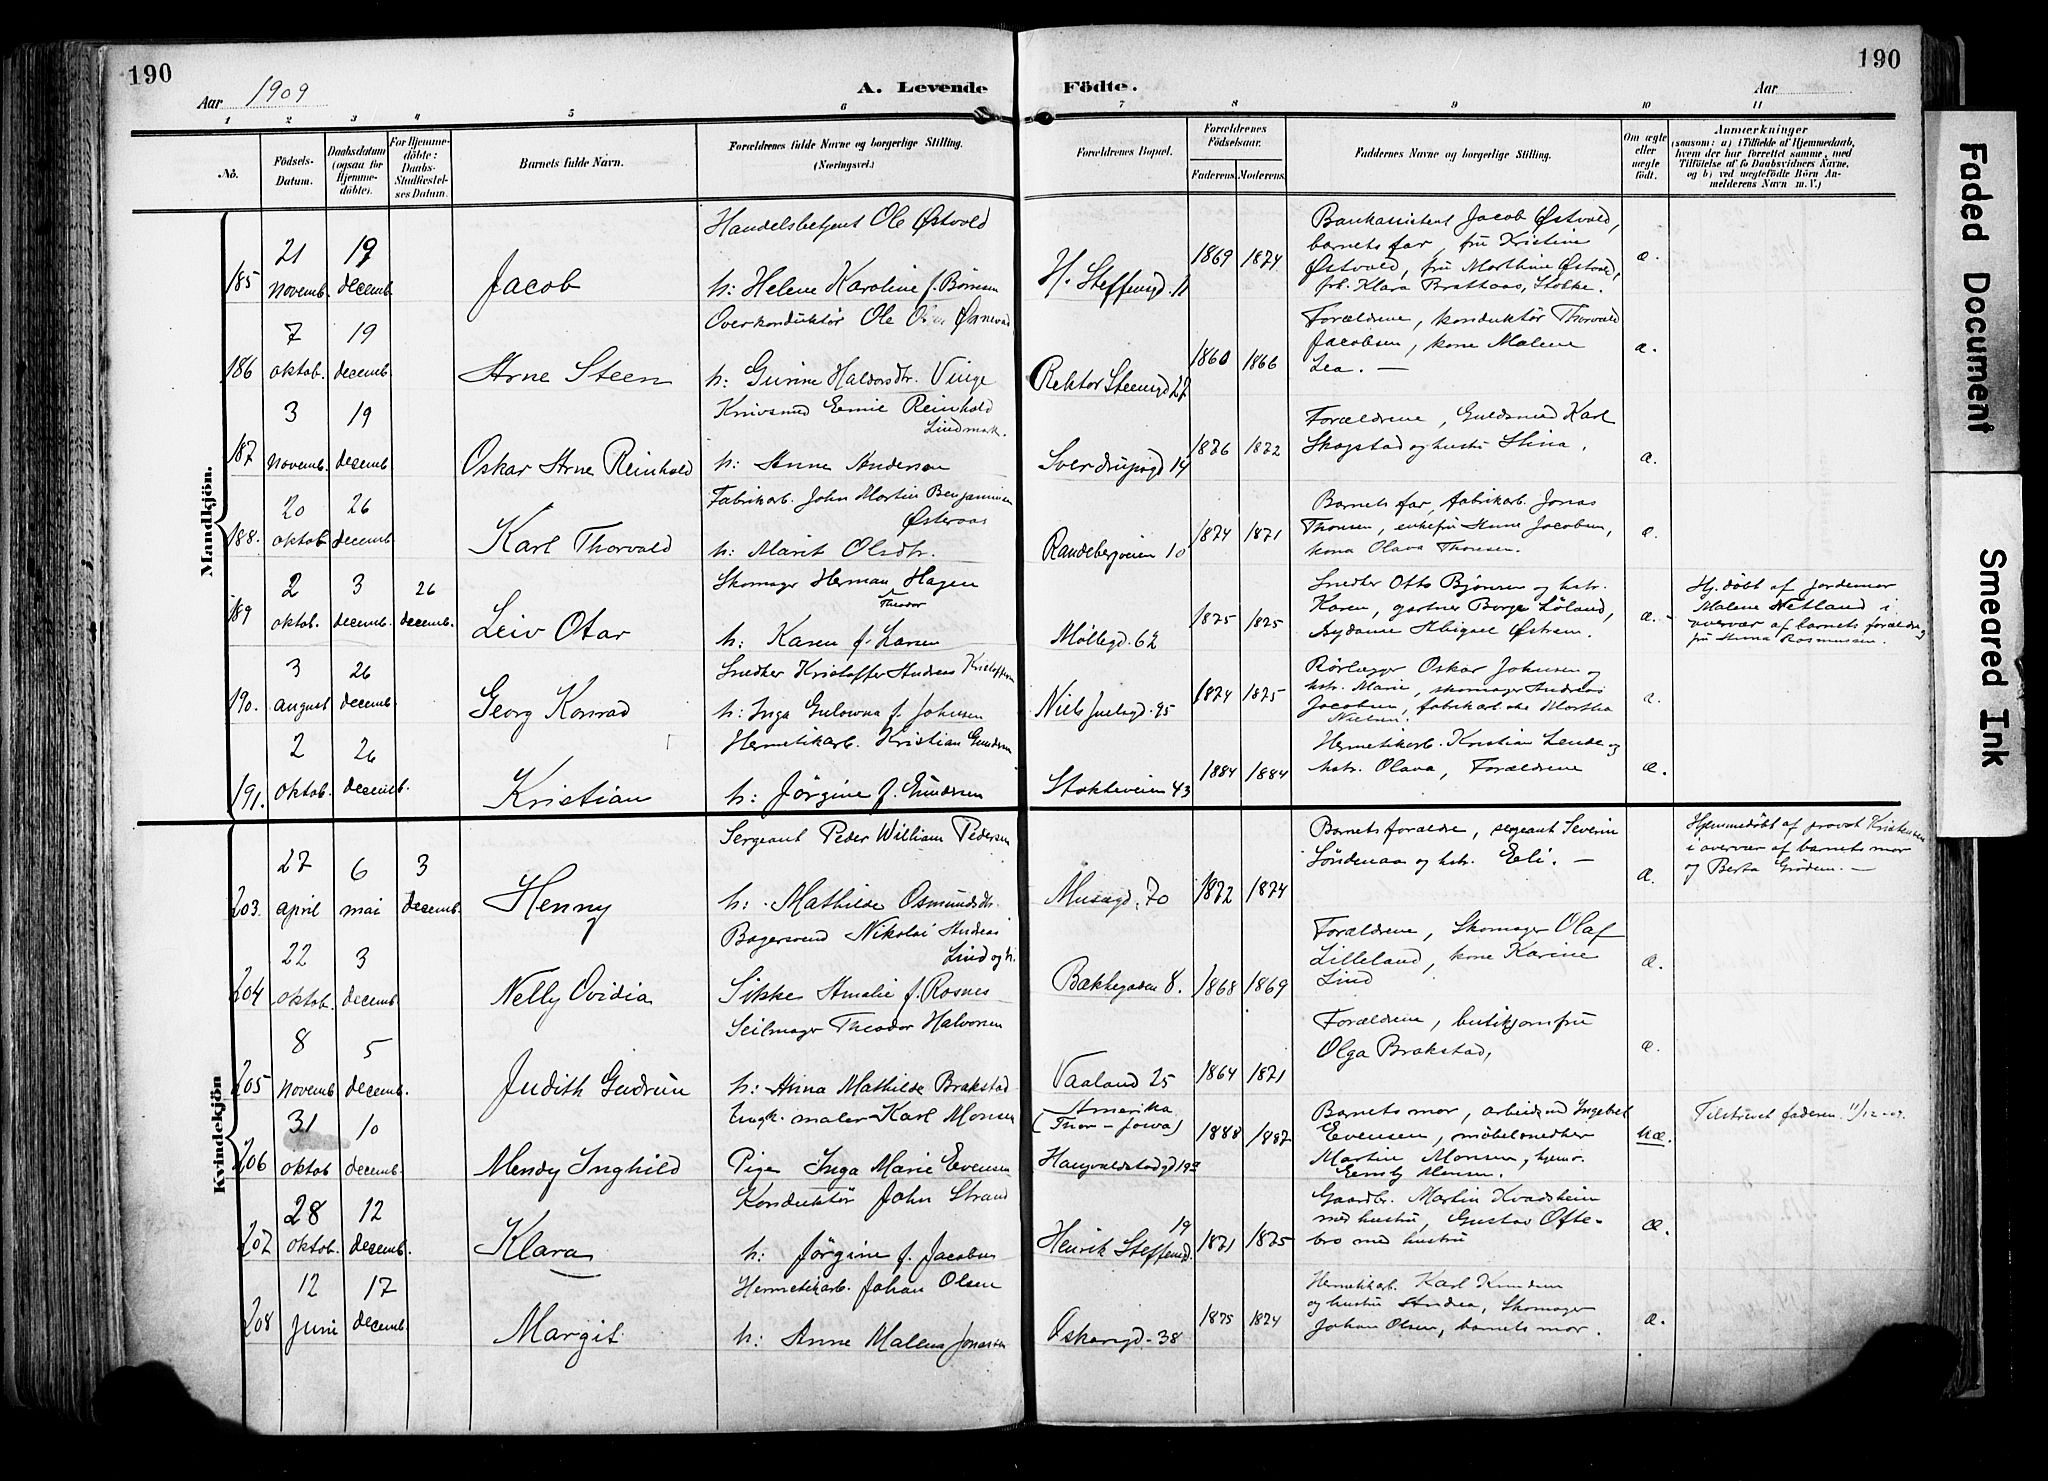 190
Aar 1909
A. Levende
Födte.
Aar
190
1 2 3 4 5 6 7 8 9 10 11
No.
Födsels-Datum.
Daabsdatum (ogsaa for Hjemmedöbte).
For Hjemmedöbte: Daabs-Stadfæstelses Datum.
Barnets fulde Navn.
Forældrenes fulde Navne og borgerlige Stilling. (Næringsvei.)
Forældrenes Bopæl.
Forældrenes Födselsaar.
Faderens. Moderens.
Faddernes Navne og borgerlige Stilling.
Om ægte eller uægte födt.
Anmærkninger
(saasom: a) i Tilfælde af Hjemmedaab, hvem der har forrettet samme, med Tilföielse af to Daabsvidners Navne, og b) ved uægtefödte Börn Anmelderens Navn m. V.)
Mandkjön.
185
21 novemb.
19 decemb.
Jacob
Handelsbetjent Ole Østvold
h: Helene Karoline f. Børresen
H. Steffensgd. 11
1869 1874
Bankassistent Jacob Østvold,
barnets far, fru Kristine
Østvold, fru Marthine Østvold,
frk. Klara Brattaas, Stolke.
æ.
186
7 oktob.
19 decemb.
Arne Steen
Overkonduktör Ole
h: Gurine Haldorsdtr. Vinge
Rektor Steensgd 27
1860 1866
Forældrene, konduktör Thorvald
Jacobsen, kone Malene
Lea. —
æ.
187
3 novemb.
19 decemb.
Oskar Arne Reinhold
Knivsmed Emil Reinhold
Lindmark.
h: Anne Andersen
Sverdrupsgd 14
1876 1872
Forældrene, Guldsmed Karl
Skogstad og hustru Stina.
æ.
188.
20 oktob
26 decemb.
Karl Thorvald
Fabrikarb. John Martin Benjaminsen
Østeraas
h: Marit Olsdtr.
Randebergveien 10
1874 1871
Barnets far, fabrikarb. Jonas
Thonsen, enkefru Anne Jacobsen,
kona Olava Thonsen.
æ.
189
2 oktob.
3 decemb.
26 decemb.
Leiv Otar
Skomager Herman Hagen
Theodor
h: Karen f. Larsen
Møllegd. 62
1875 1875
Snedker Otto Bjønsen og hstr.
Karen, gartner Borge Löland,
Østrem.
æ.
Hj. døbt af jordemor
Malene Netland i
overvær af barnets forældre og
fru Anna Rasmussen.
190.
3 august
26 decemb.
Georg Konrad
Snedker Kristoffer Andreas Kristoffersen
h: Inga Gulowna f. Johnsen
Niels Juelsgd. 95
1874 1875
Rörlægger Oskar Johnsen og
hstr. Marie, skomager Andreas
Jacobsen, fabrikarb.ske Martha
Nielsen.
æ.
191.
2 oktob.
26 decemb.
Kristian
Hermetikarb. Kristian Gundersen
h: Jörgine f. Gundersen
Stokkeveien 43
1884 1884
Hermetikarb. Kristian Lende og
hstr. Olava, Forældrene
æ.
Kvindekjön
203.
27 april
6 mai
3 decemb.
Henny
Sergeant Peder William Pedersen
h: Mathilde Osmundsdtr.
Musegd. 70
1872 1874
Barnets forældre, sergeant Severin
Söndenaa og hstr. Eli. —
æ.
Hjemmedöbt af provst Kristensen
i overvær af barnets mor
og Berta Grödem. —
204
22 oktob.
3 decemb
Nelly Ovidia
Bagersvend Nikolai Andreas
Lind og h.
Sikke Amalie f. Rosnes
Bakkegaden 8.
1868 1869
Forældrene, Skomager Olaf
Lilleland, kone Karine
Lind
æ.
205
8 novemb
5 decemb.
Judith Gudrun
Seilmager Theodor Halvorsen
h: Anna Mathilde Brakstad
Vaaland 25
1864 1871
Forældrene, butikjomfru
Olga Brakstad,
æ.
206
31 oktob
10 decemb.
Mendy Inghild
Ungk. maler Karl Monsen
Pige Inga Marie Evensen
Amerika
(Thor - Jowa)
Haugvaldstadgd 19a
1888 1887
Barnets mor, arbeidsmd Ingebret
Evensen, möbelsnedker
Martin Monsen, hjemv.
Emly Monsen.
uæ.
Tilskrevet faderen 11/12-09.
207
28 oktob.
12 decemb.
Klara
Konduktör John Strand
h: Jörgine f. Jacobsen
Henrik Steffensgd. 19
1871 1875
Gaardbr. Martin Kvadsheim
med hustru, Gustav Ofte-
bro med hustru
æ.
208
12 juni
17 decemb.
Margit
Hermetikarb. Johan Olsen
h: Anne Malena Jonassen
Oskarsgd. 38
1875 1874
Hermetikarb. Karl Knudsen
og hustru Andrea, Skomager
Johan Olsen, barnets mor.
æ.
Faded Document
Smeared Ink